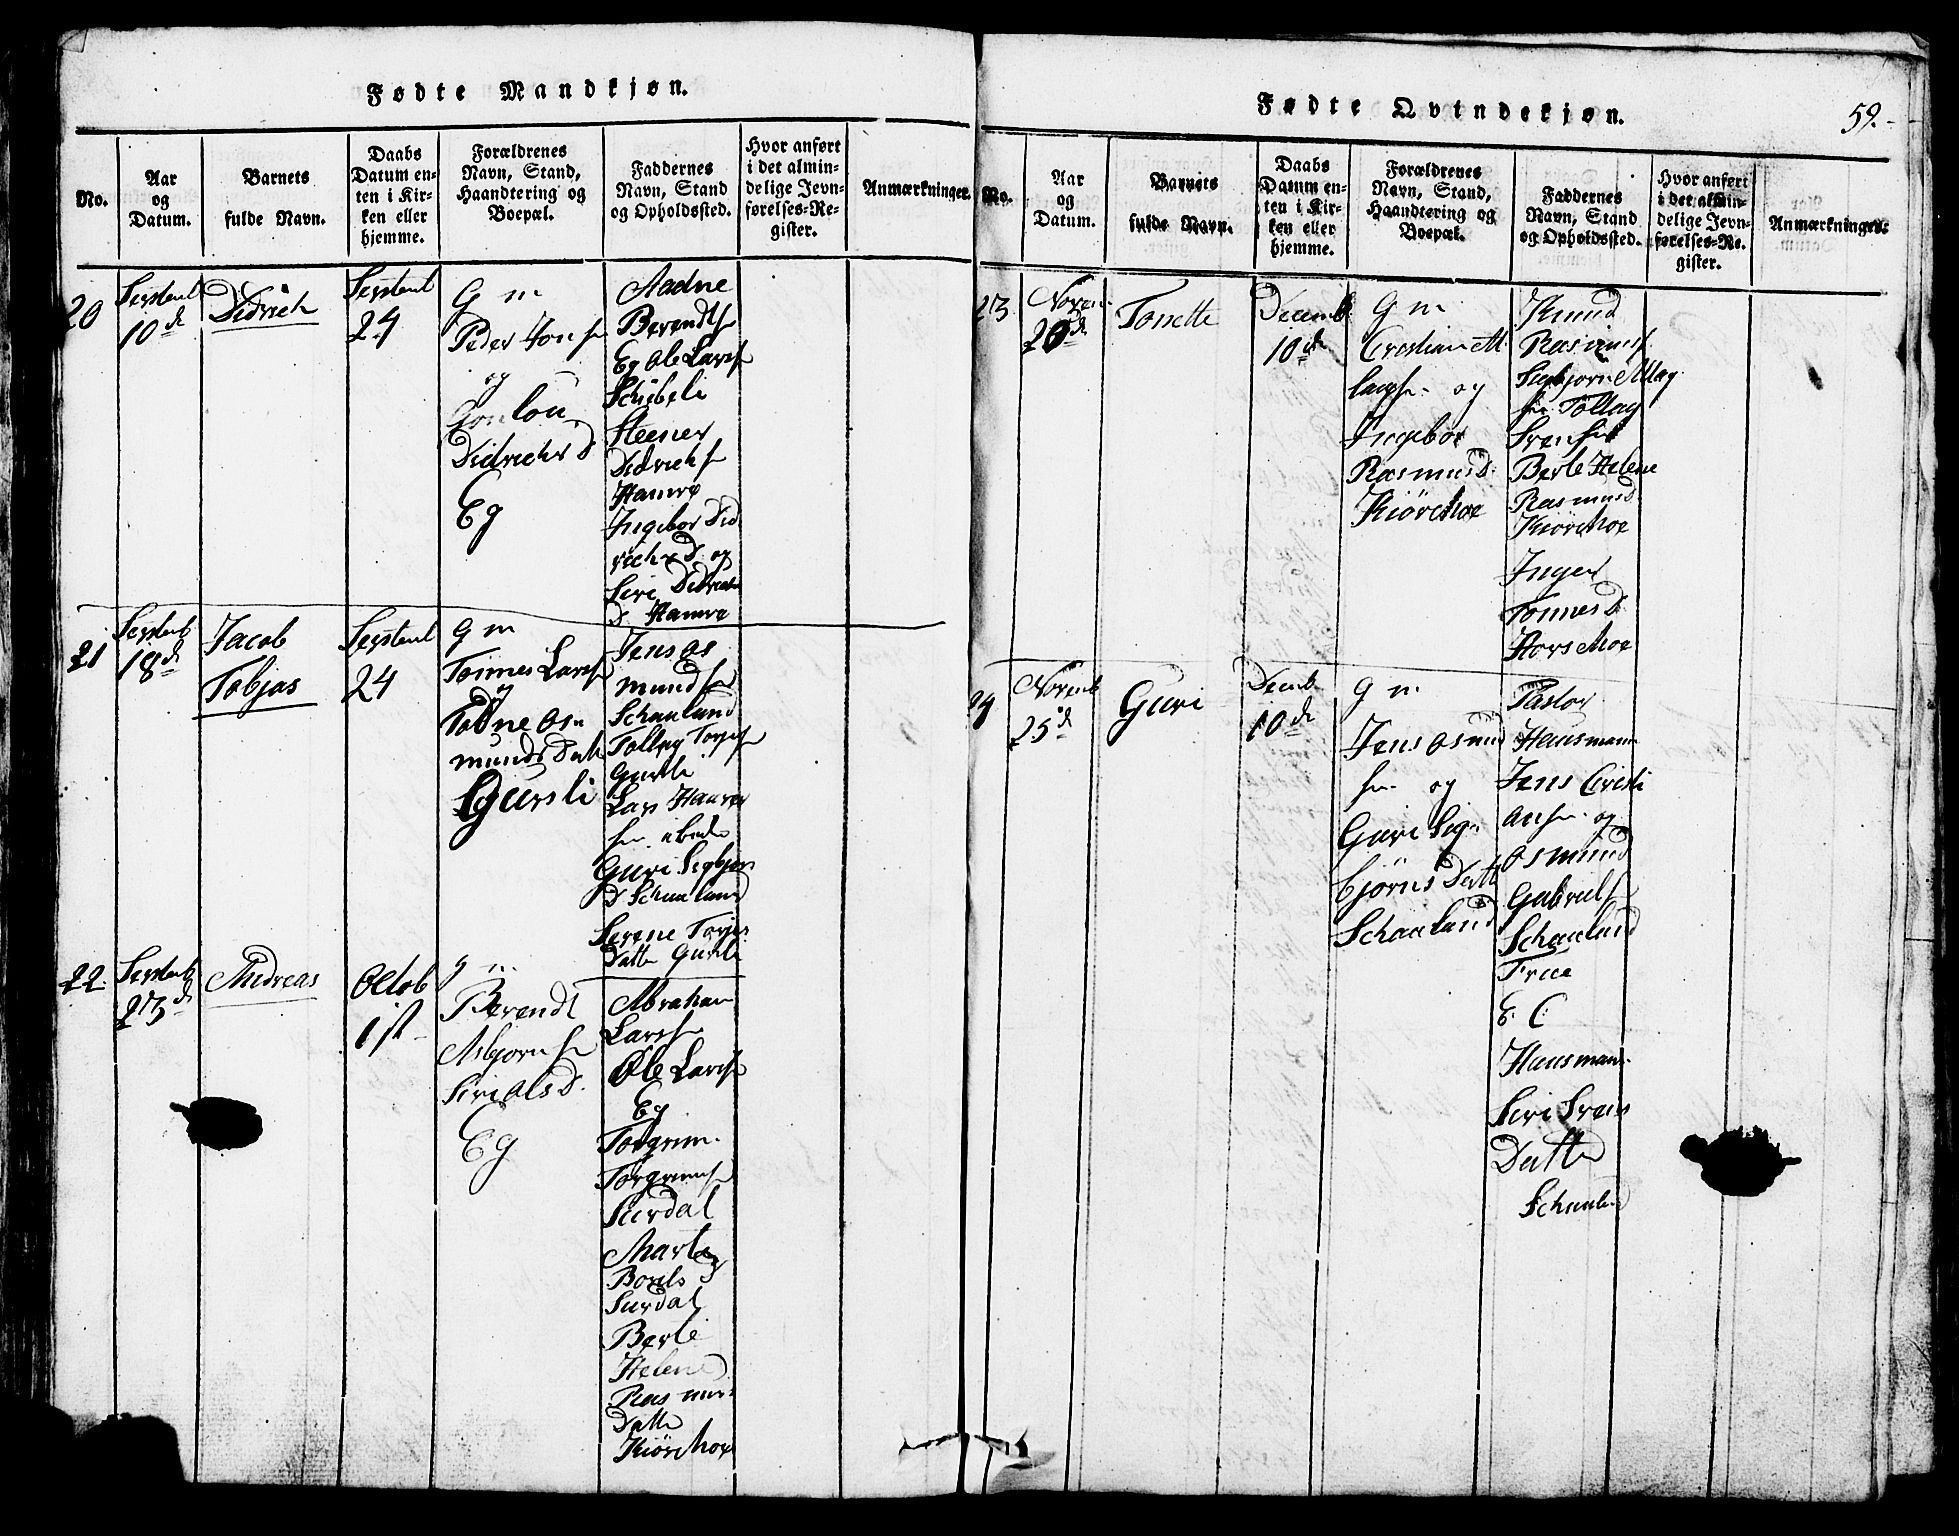 Fødte Mandkjøn.
No.
Aar
og
Datum.
Barnets
fulde Navn.
Daabs
Datum en-
ten i Kir-
ken eller
hjemme.
Forældrenes
Navn, Stand,
Haandtering og
Boepæl.
Faddernes
Navn, Stand
og Opholdssted.
Hvor anført
i det almin-
delige Jevn-
førelses-Re-
gister.
Anmærkninger.
20
Septemb
10 de
Didrich
Septemb
24
G m
Peder Jons
og
Didrichs D
Eg
Aadne
Berendts
Eg Ole Lars
Steener
Didrichs
Hamre
Ingebor Did
richs D. og
Siri Didrichs
D. Hamre
21
Septemb
18 de
Jacob
Tobjas
Septemb
24
G m
Tønnes Lars
og
munds Datt
Gursli
Jens Os
munds
Schaaland
Tollag Torjus
Gursli
Lars
Guri Sigbjørn
D Schaaland
Serene Torjus
Datte Gursli
22.
Septemb
23 de
Andreas
Octob
1st
g m
Berendt
Asbjørns
Siri Ols D.
Eg
Abraham
Lars
Ole Lars
Eg
Torgrim
Torgrims
Surdal
Marte
Boels
Surdal
Berte
Helene
Rasmus
Datte
Kiørrmoe
Fødte Qvindekjøn.
59.-
No.
Aar
og
Datum.
Barnets
fulde Navn.
Daabs
Datum en-
ten i Kir-
ken eller
hjemme.
Forældrenes
Navn, Stand,
Haandtering og
Boepæl.
Faddernes
Navn, Stand
og Opholdssted.
Hvor anført
i det almin-
delige Jevn-
førelses-Re-
gister.
Anmærkninger.
23
Novem
Tonette
Decemb
10 de
G m
Cristian M
og
Ingebor
Rasmus D.
Kiørrmoe
Knud
Rasmus
Sigbjørn
Tollag
Berte Helene
Rasmus D.
Kiørrmoe
Inger
Tønnes D.
24
Novemb
25 de
Guri
Decemb
10 de
G m
Jens Osmund
og
Guri Sig
bjørns Datt
Schaaland
Pastor
Hausmann
Jens Cristi
ans og
Osmund
Gabriels
Schaaland
Frue
E: C:
Hausmann
Siri Svens
Datte
Schaaland